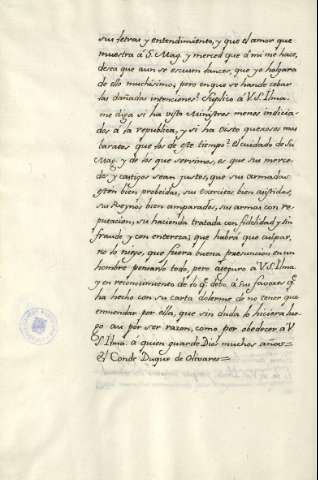 sus letras y entendimiento, y que el amor que
muestra á S. Mag. y merced que á mi me hace,
desea que aun se escusen lances, que yo holgara
de ello muchisimo; pero en que se han de cebar
las dañadas intenciones? Suplico á V. S. Ilma.
me diga si ha visto Ministros menos indicia-
dos á la republica, y si ha visto quexosos mas
baratos que los de este tiempo? el cuidado de Su
Mag. y de los que servimos, es que sus merce-
des y castigos sean justos, que sus armadas
esten bien probeidas, sus exercitos bien asistidos,
sus Reynos bien amparados, sus armas con re-
putacion, su hacienda tratada con fidelidad y sin
fraude y con entereza; que habrá que culpar,
no lo niego, que fuera buena presuncion en un
hombre pensarlo todo, pero aseguro a V. S. Ilma.
y en reconocimiento de lo q.e debo á sus favores q.e
ha hecho con su carta dolerme de no tener que
enmendar por ella, que sin duda lo hiciera lue-
go asi por ser razon, como por obedecer á V.
S. Ilma. a quien guarde Dios muchos años=
El Conde Duque de Olivares=